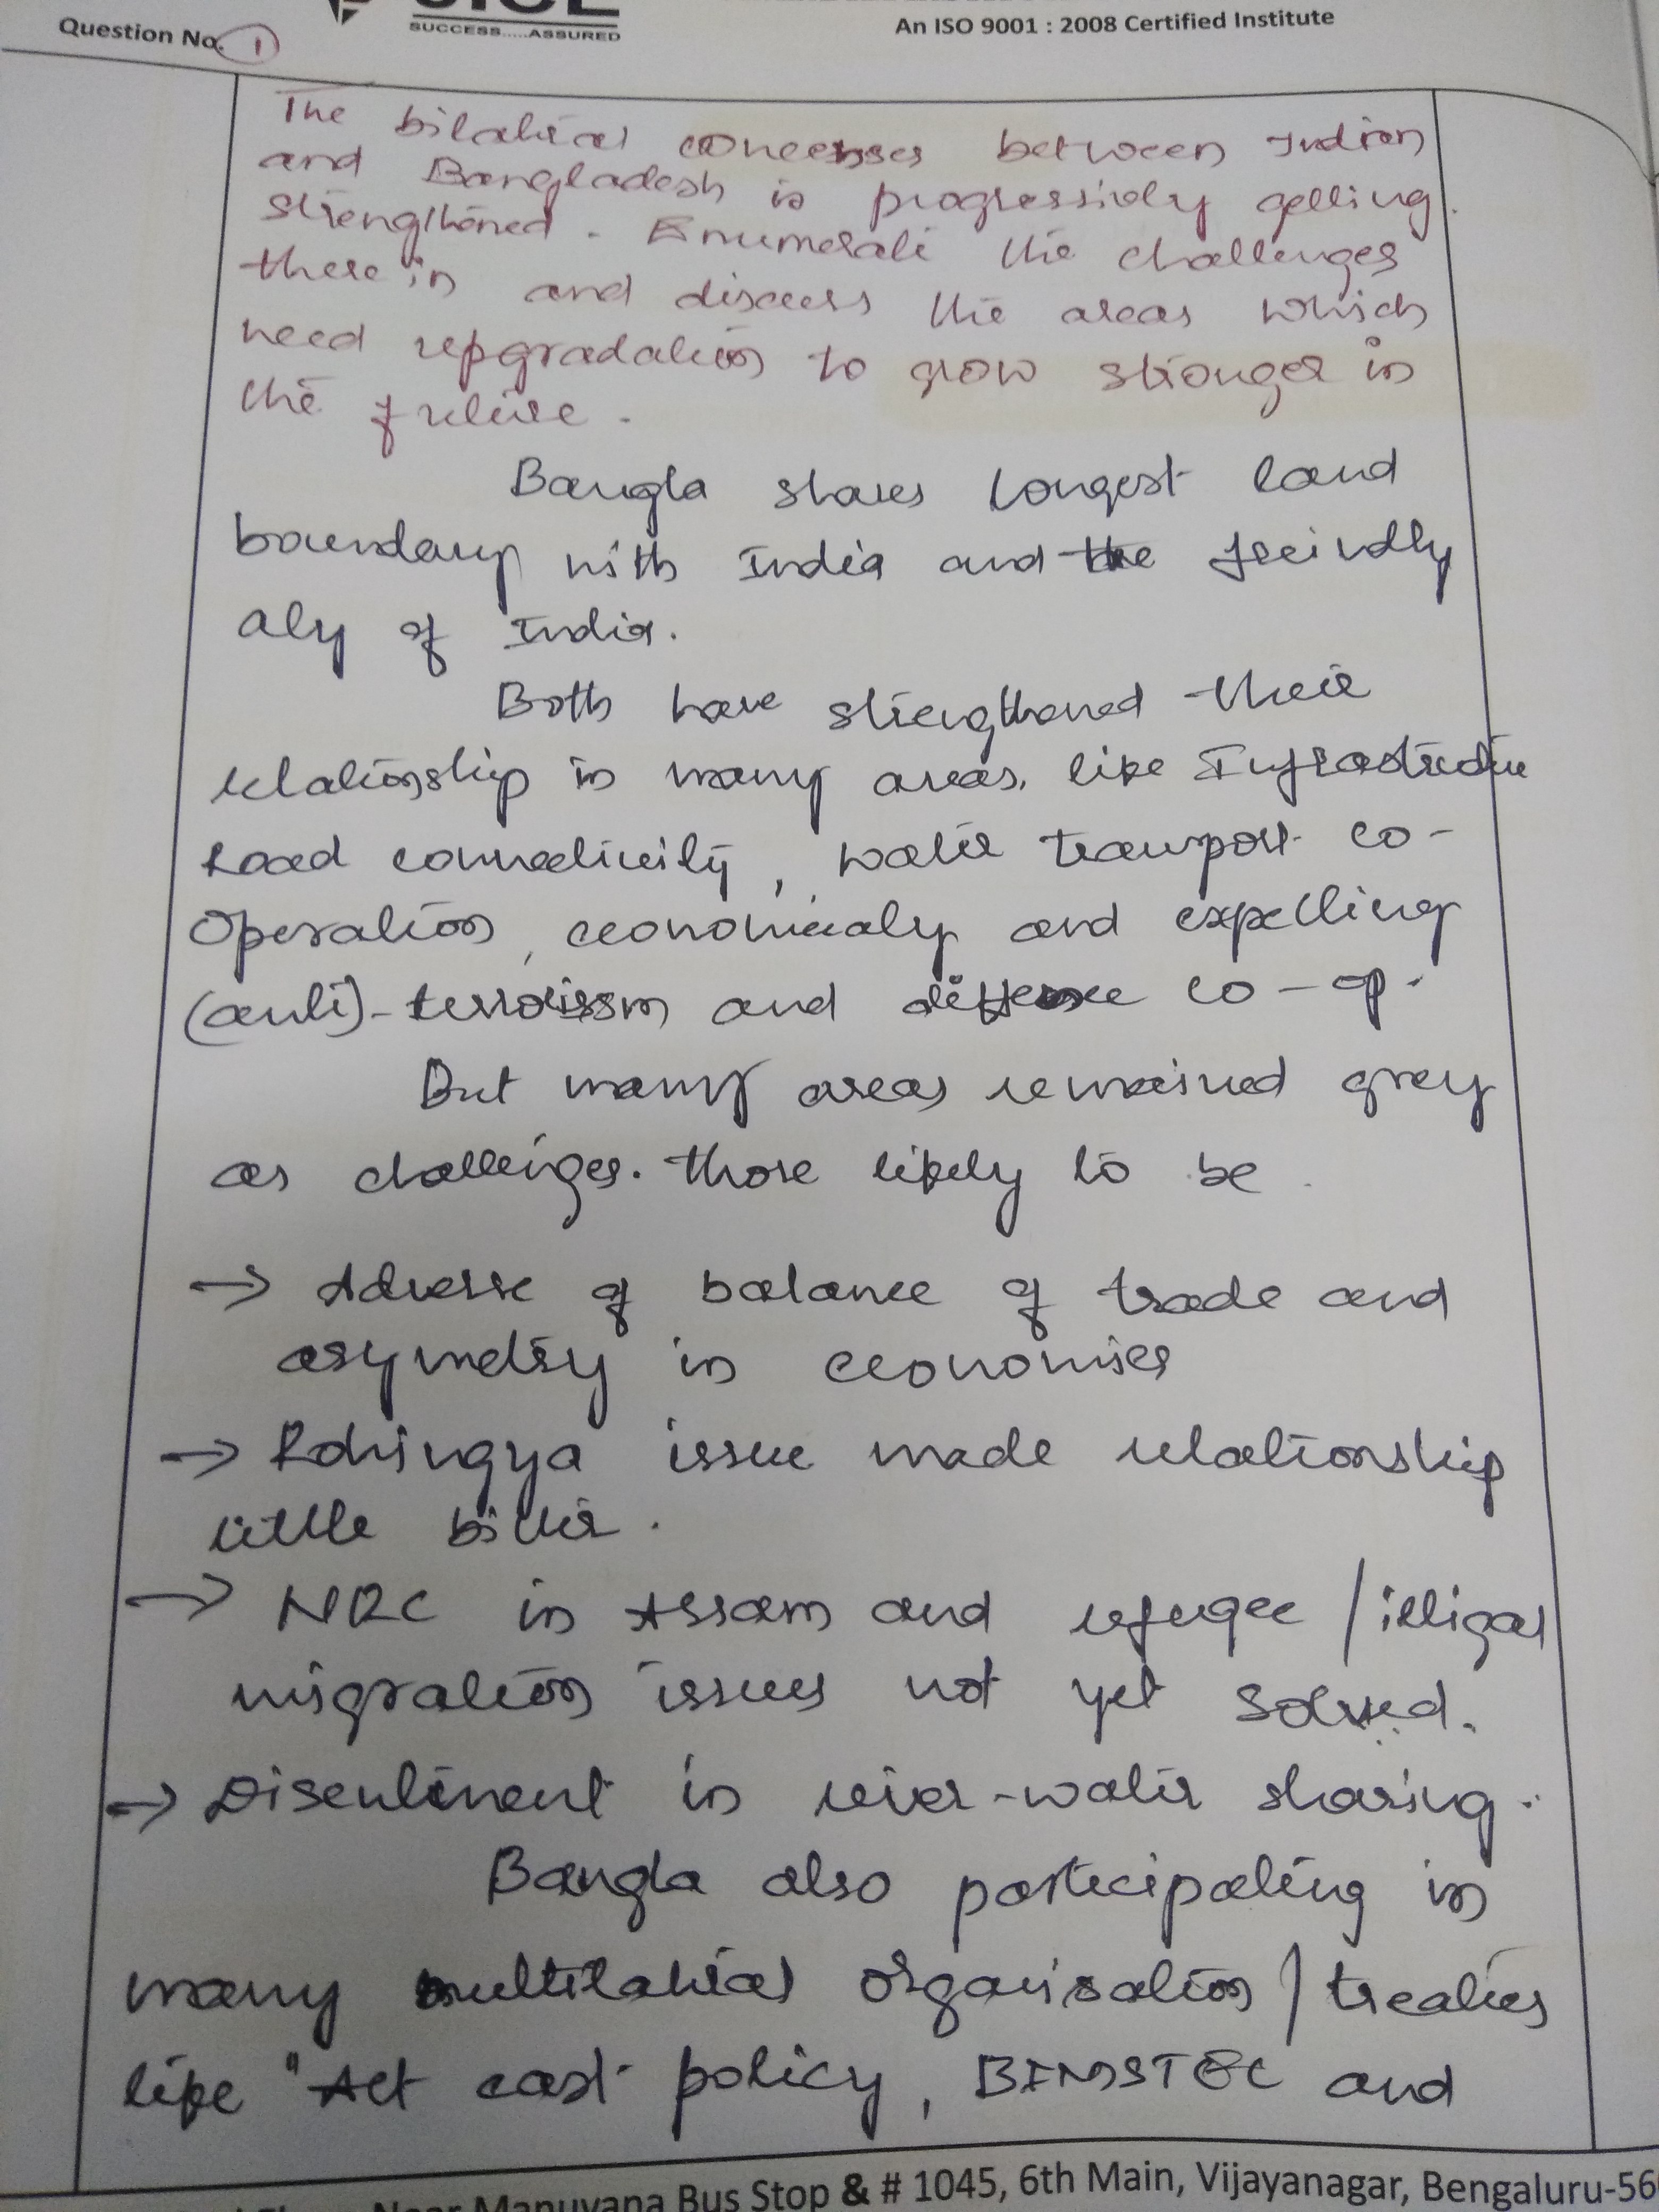 Question No. 1
SUCCESS.....ASSURED
An ISO 9001 : 2008 Certified Institute
The bilateral between Indian
and Bangladesh is progressively getting
strengthened. Enumerate the challenges
there in and discuss the areas which
need upgradation to grow stronger in
the future.
Bangla shares longest land
boundary with India and the freindly
aly of India.
Both have strengthened their
relationship in many areas, like Infrastructure
Road connectivity, water transport co-
operation, economicaly and expelling
(anti)-terrorissm and co-op.
But many areas remained grey
as challenges. Those likely to be
→ Adverse of balance of trade and
asymetry in economies
→ Rohingya issue made relationship
little bitter.
→ NRC in Assam and refugee / illigal
migration issues not yet solved.
→ Disentiment in river-water sharing.
Bangla also participating in
many multilateral organisation / treaties
like "Act east policy, BIMSTEC and
Near Manuvana Bus Stop & # 1045, 6th Main, Vijayanagar, Bengaluru-56